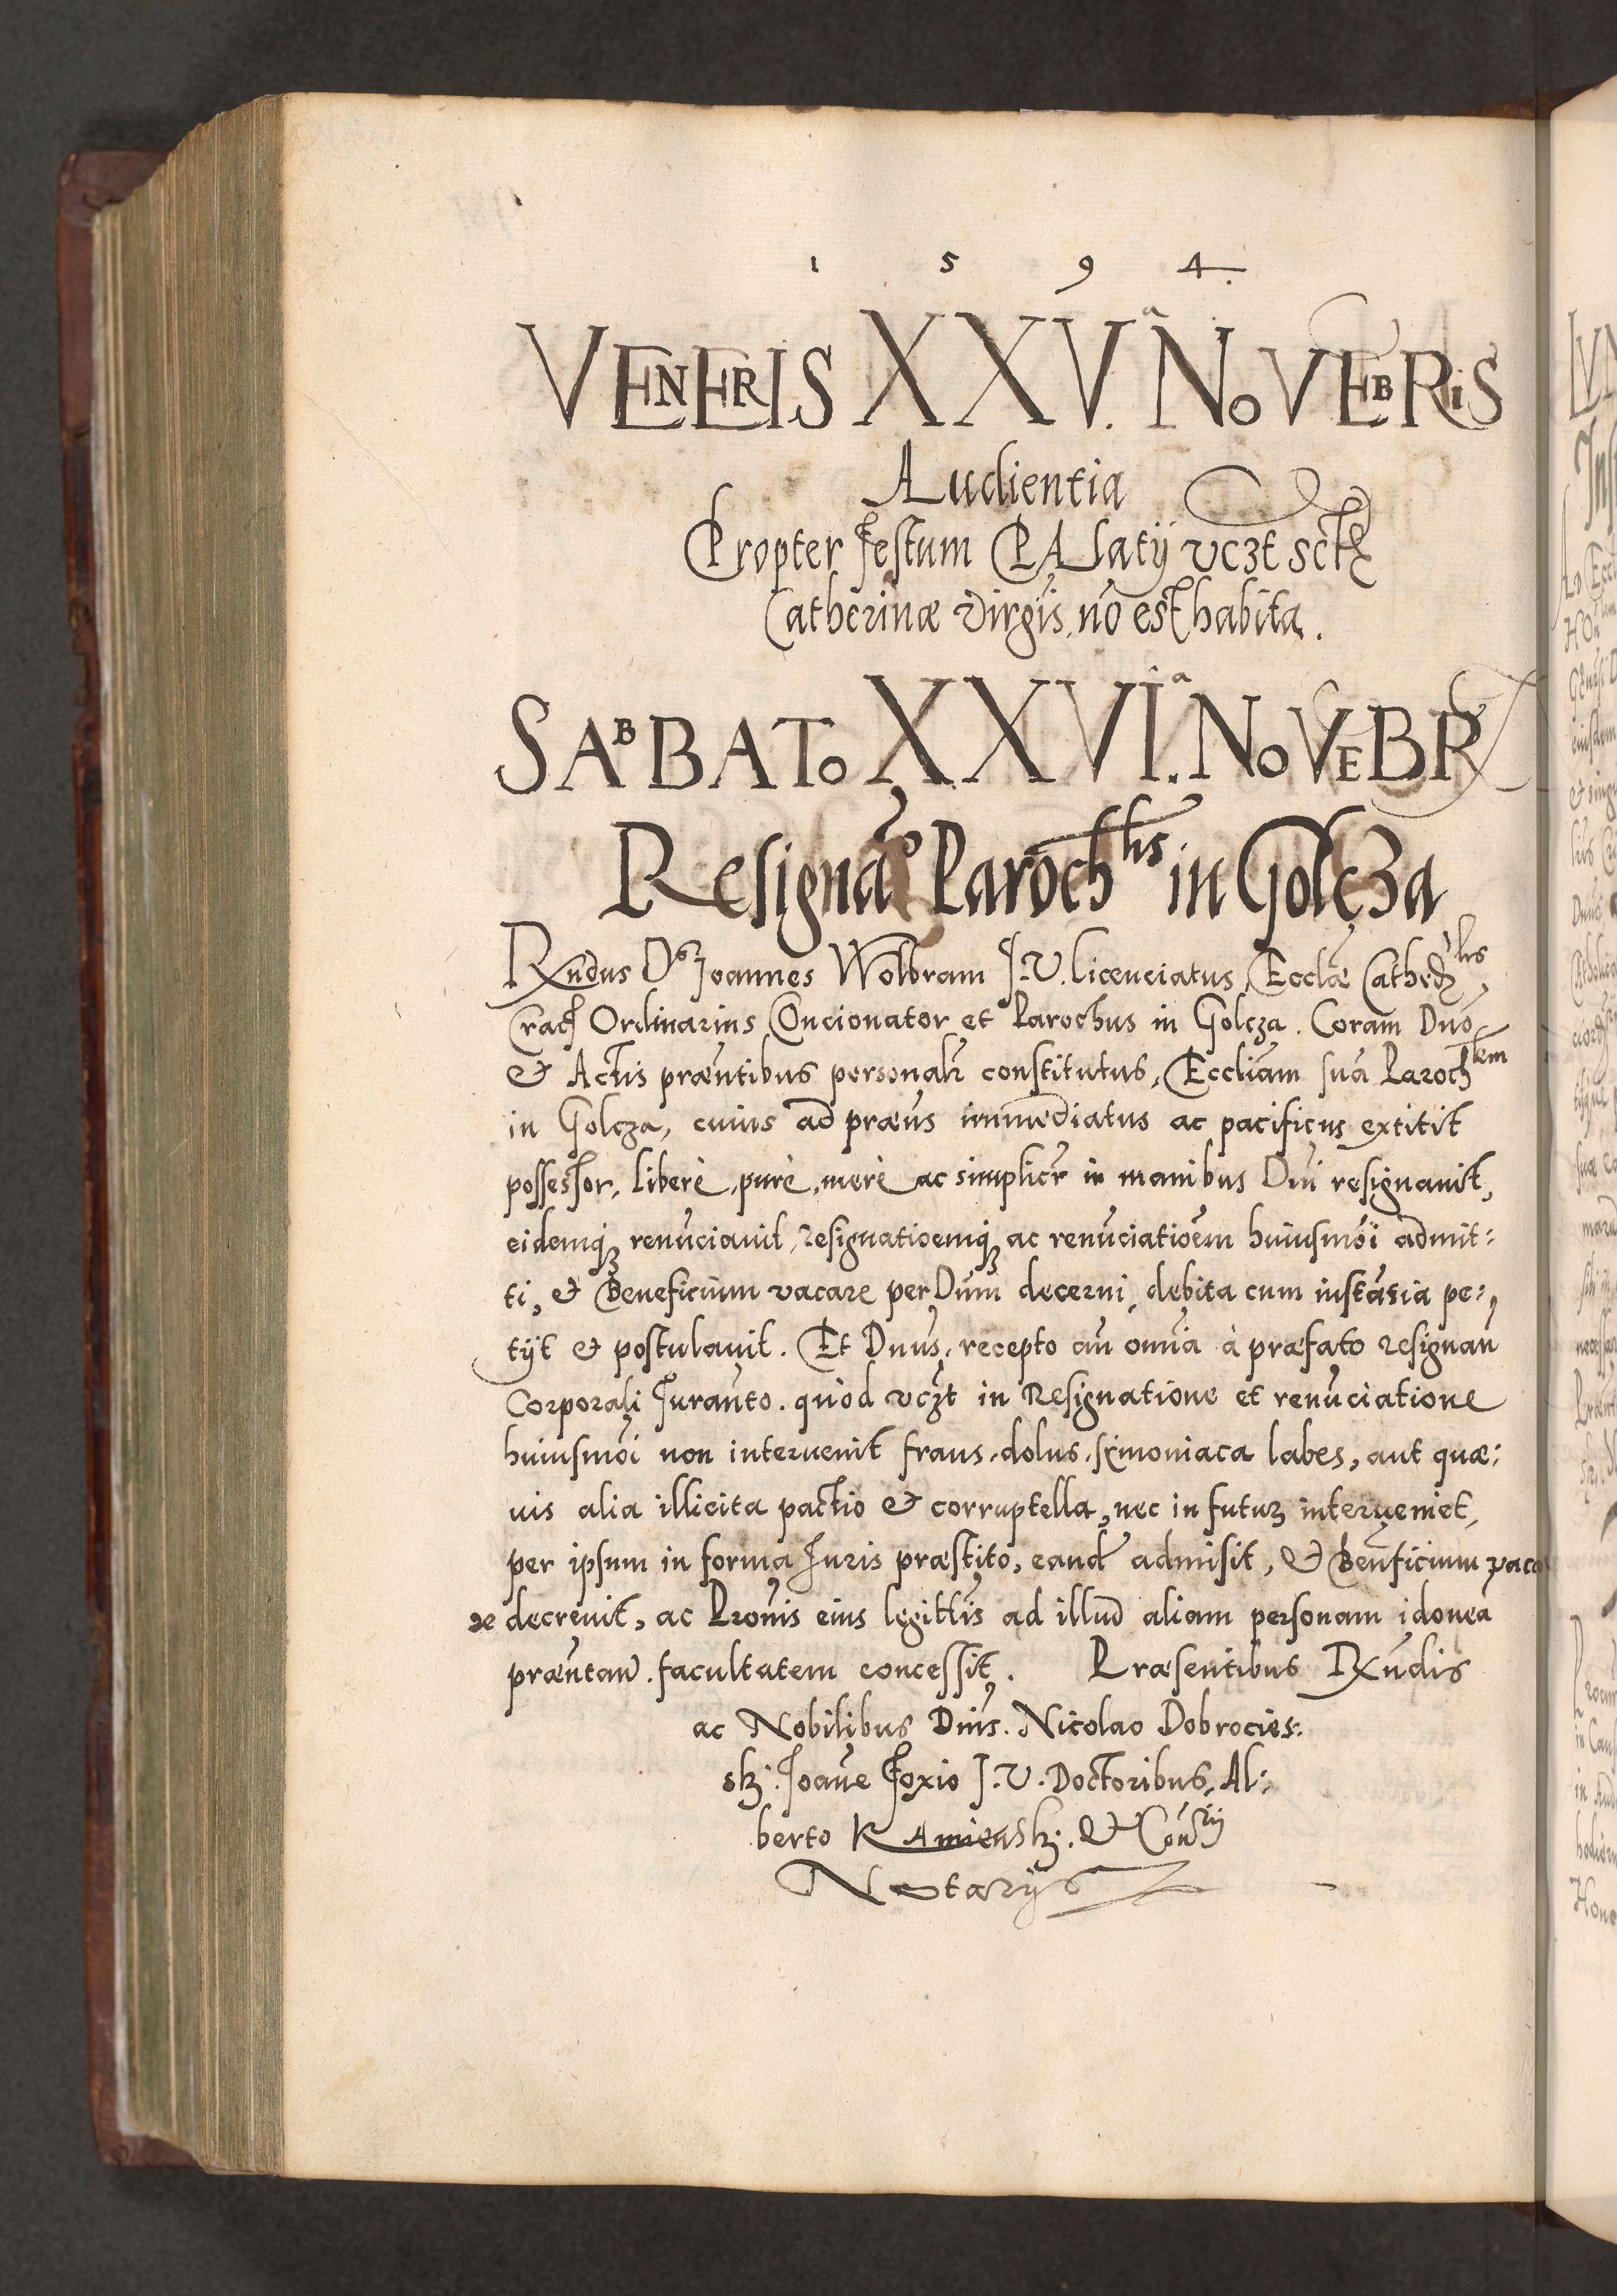 1 5 9 4.
VENERIS XXV.ª NOVEBRIS
Audientia
Propter festum PALatij vczt sctę
Catherinæ Virgis, nō est habita.
SABBATO XXVI.ª NOVEBR
Resignaō Parochlis in Golcza
Rndus Ds Joannes Wolbram J. V. licenciatus, Ecclæ Cathedrlis
Crac Ordinarius Concionator et Parochus in Golcza. Coram Dnō
& Actis præntibus personalr constitutus, Eccliam suā Parochlem
in Golcza, cuius ad præns immediatus ac pacificus extitit
possessor, liberè, purè, merè ac simplicr in manibus Dni resignauit,
eidemq; renūciauit, resignatioemq; ac renūciatioem huiusmōi admit:
ti, & Beneficium vacare per Dnm decerni, debita cum instātia pe:
tijt & postulauit. Et Dnus, recepto an omnia à præfato resignan
Corporali Juranto. quòd vczt in Resignatione et renūciatione
huiusmōi non interuenit fraus, dolus, simoniaca labes, aut quæ:
uis alia illicita pactio & corruptella, nec in futuꝝ interueniet,
per ipsum in forma Juris præstito, eand admisit, & Benficium vaca
re decreuit, ac Pronis eius legittis ad illud aliam personam idoneā
præntan. facultatem concessit. Præsentibus Rxndis
ac Nobilibus Dnis. Nicolao Dobrocies:
skj. Joanne Foxio J. V. Doctoribus, Al:
berto Kamienskj. & Conrij
Notarijs